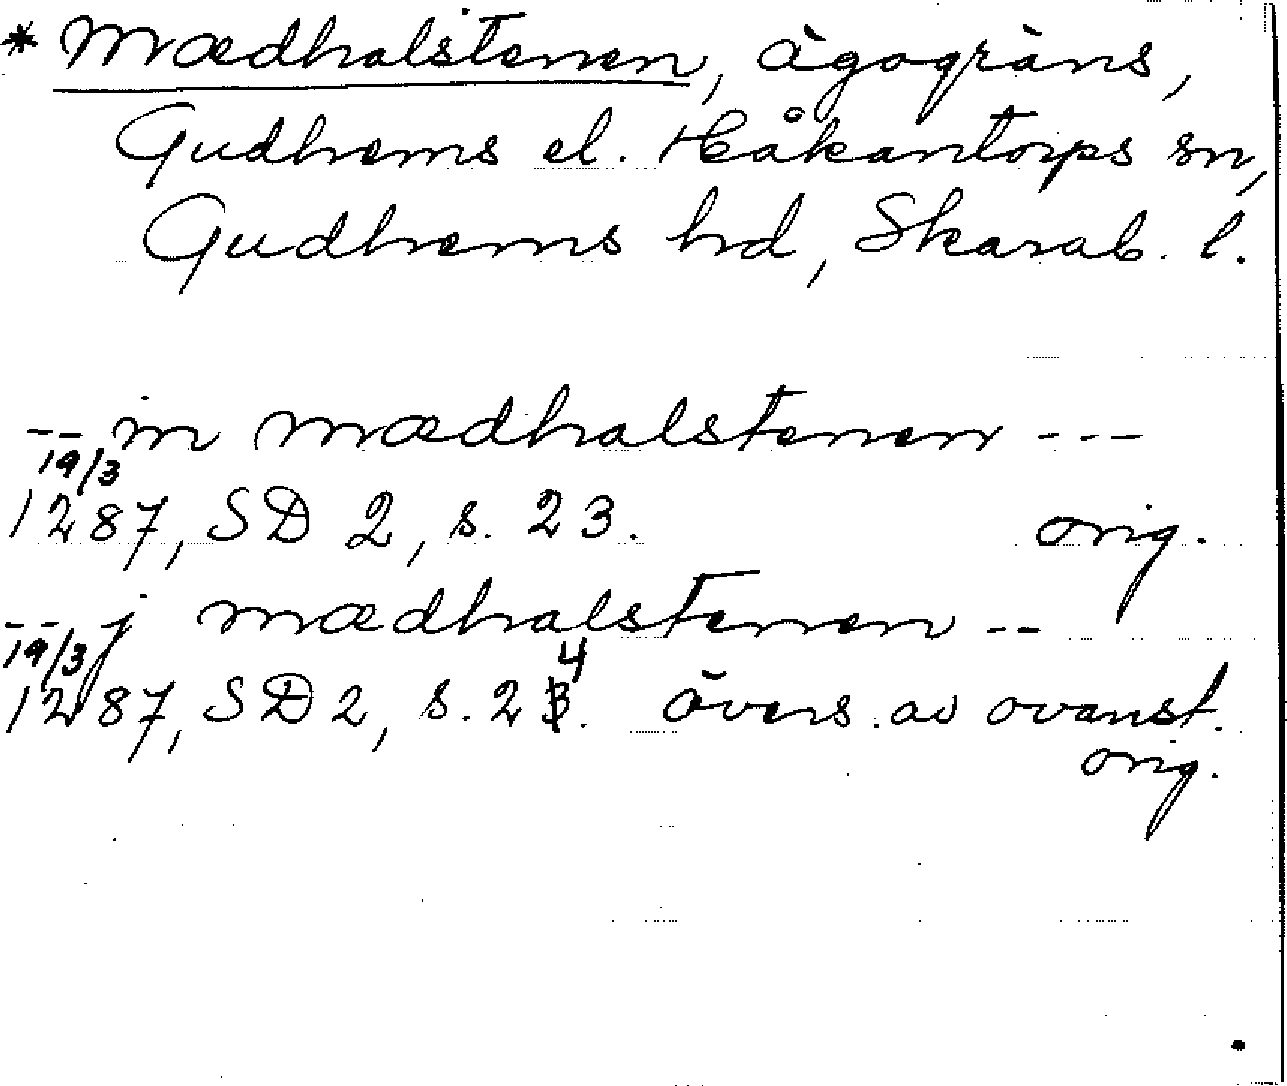 * Mædhalstenen, ägogräns,
Gudhems el. Håkantorps sn,
Gudhems hd, Skarab. l.
-- in mædhalstenen ---
19/3
1287, SD 2, s. 23. orig.
-- j mædhalstenen --
19/3 4
1287, SD 2, s. 23. övers. av ovanst.
orig.